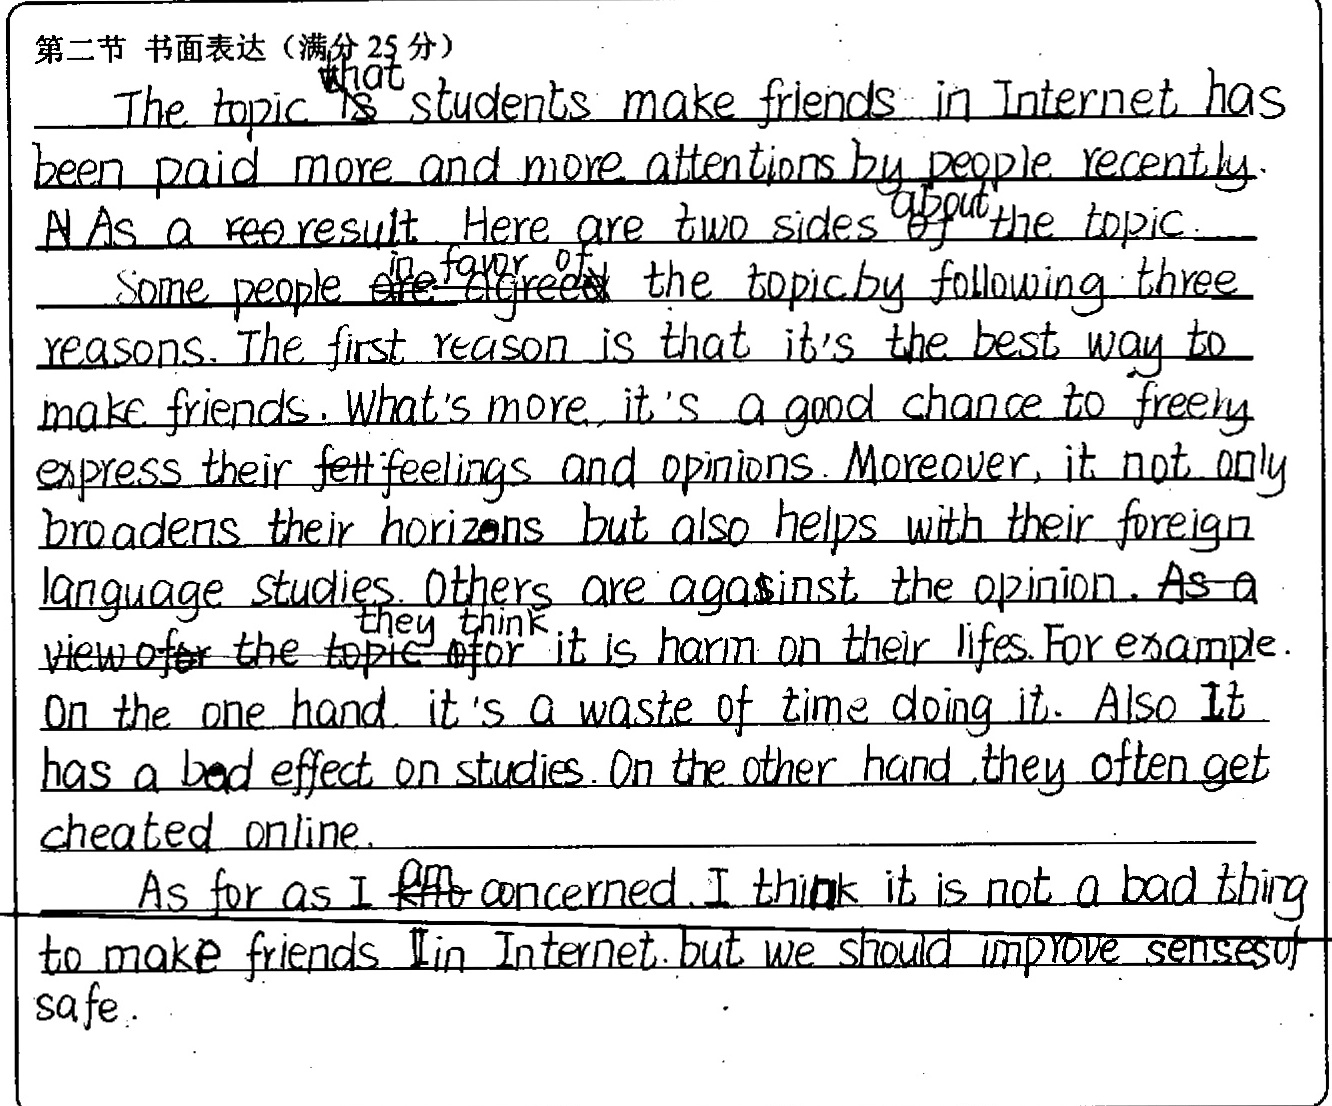 第二节 书面表达（满分 25 分）
The topic that students make friends in Internet has
been paid more and more attentions by people recently.
As a result. Here are two sides about the topic.
Some people in favor of the topic by following three
reasons. The first reason is that it's the best way to
make friends. What's more, it's a good chance to freely
express their feelings and opinions. Moreover, it not only
broadens their horizons but also helps with their foreign
language studies. Others are against the opinion.
they think it is harm on their lifes. For example.
On the one hand. it's a waste of time doing it. Also It
has a bad effect on studies. On the other hand, they often get
cheated online.
As for as I am concerned. I think it is not a bad thing
to make friends in Internet. but we should improve senses of
safe.